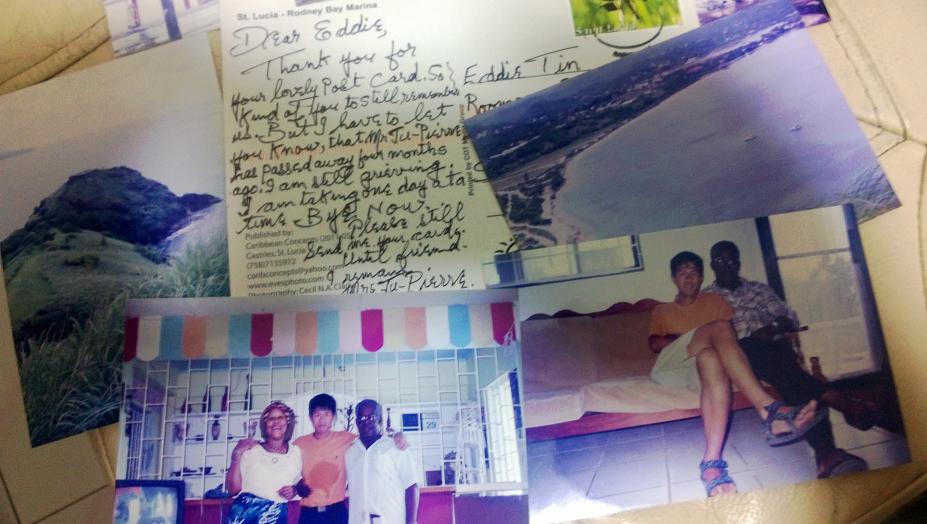 St. Lucia - Rodney Bay Marina
Dear Eddie,
Thank you for
your lovely Post Card. So
Kind of You to Still remember
us. But I have to let
you Know, that Mr. Ju-Pierre
has passed away four months
ago. I am still grieving.
I am taking one day at a
time Bye Now.
Please still
Send me your cards.
Until friend.
I remain
Mrs. Ju-Pierre.
Eddie Tin
Published by:
Caribbean Concepts (2011)
Castries, St. Lucia
(758)7135972
caribconcepts@yahoo.com
www.evesphoto.com
Photography: Cecil N.A.
Printed by
29